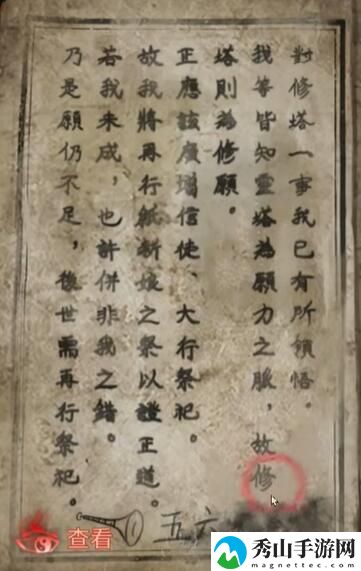 對修塔一事我已有所領悟。
我等皆知靈塔為願力之脈，故修
塔則為修願。
正應該廣增信徒、大行祭祀。
故我將再行紙新娘之祭以證正道。
若我未成，也許併非我之錯。
乃是願仍不足，後世需再行祭祀。
五六
查看
秀山手游网
magnettec.com